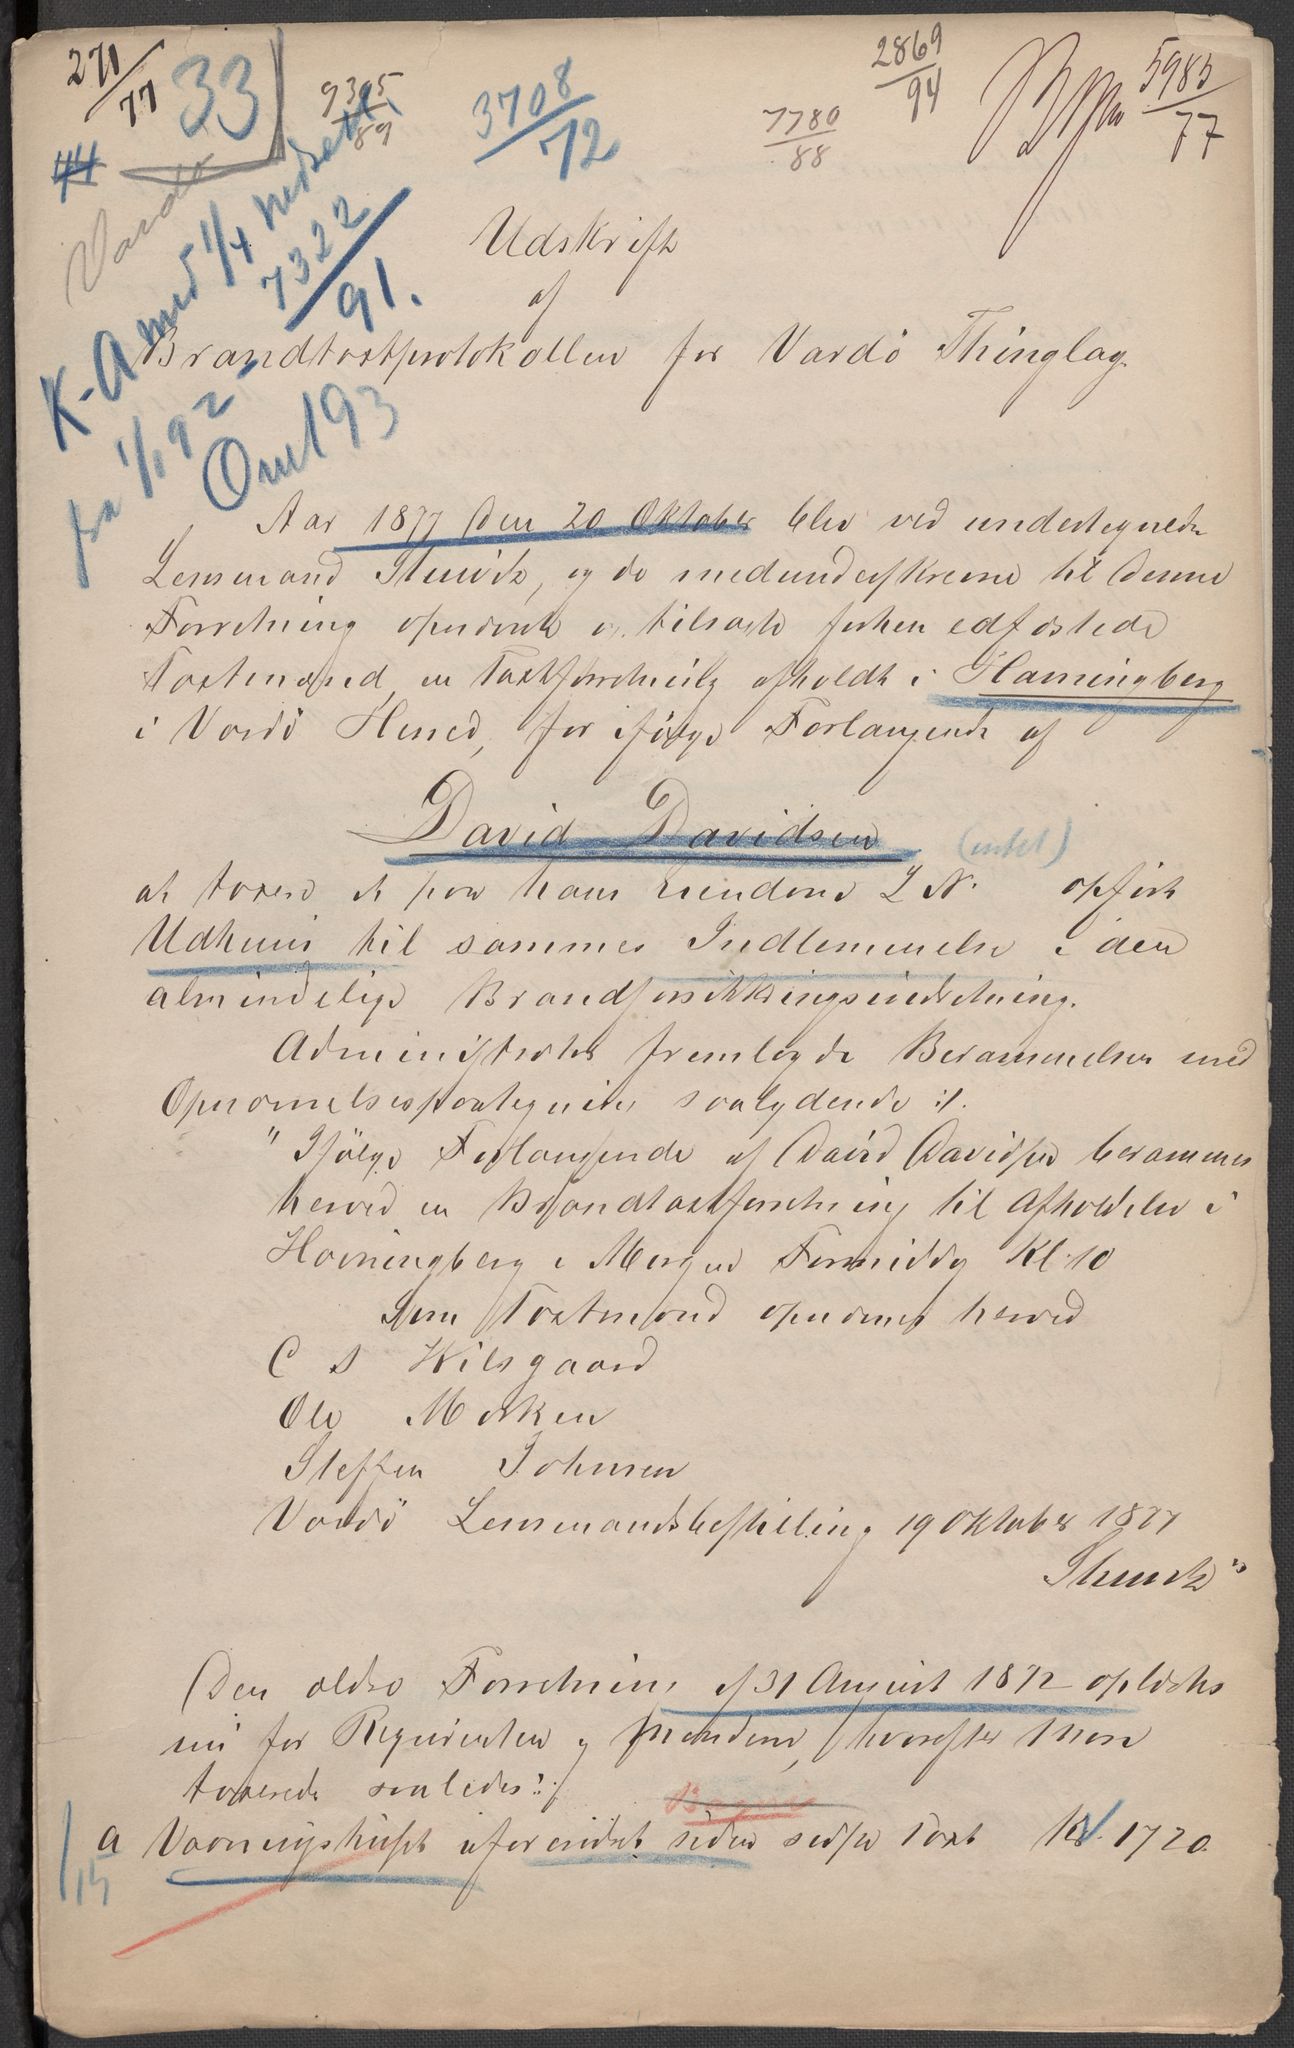 271/77
33
9305/89
3708/72
7780/88
2869/94
5985/77
44
Vardø
K-A med 1/4 nedsett
7322/91.
fra 1/1 92
Omt 93
Udskrift
af
Brandtaxtprotokollen for Vardö Thinglag.
Aar 1877 den 20 Oktober blev ved undertegnede
Lensmand, og de medunderskrevne til denne
Forretning opnævnte og tilsagte forhen edfæstede
Taxtmænd, en Taxtforretning afholdt i Havningberg
i Vardö Herred, for ifölge Forlangende af
David Davidsen
(intet)
at taxere et paa hans Eiendom L N. opfört
Udhuus til sammes Indlemmelse i den
almindelige Brandforsikkringsindretning.
Administrator fremlagde Berammelsen med
Opnævnelsespaategning saalydende :/:
"Ifölge Forlangende af David Davidsen berammes
herved en Brandtaxtforretning til Afholdelse i
Havningberg i Morgen Formiddag Kl. 10
Som Taxtmænd opnævnes herved
C S Kilsgaard
Ole Morken
Steffen Johnsen
Vardö Lensmandsbestilling 19 Oktober 1877
Den ældre Forretning af 31 August 1872 oplæstes
nu for Requirenten og Mændene, hvorefter Man
taxerede saaledes :/:
a Vaaningshuset uforandret siden sidste Taxt Kr. 1720.
/15